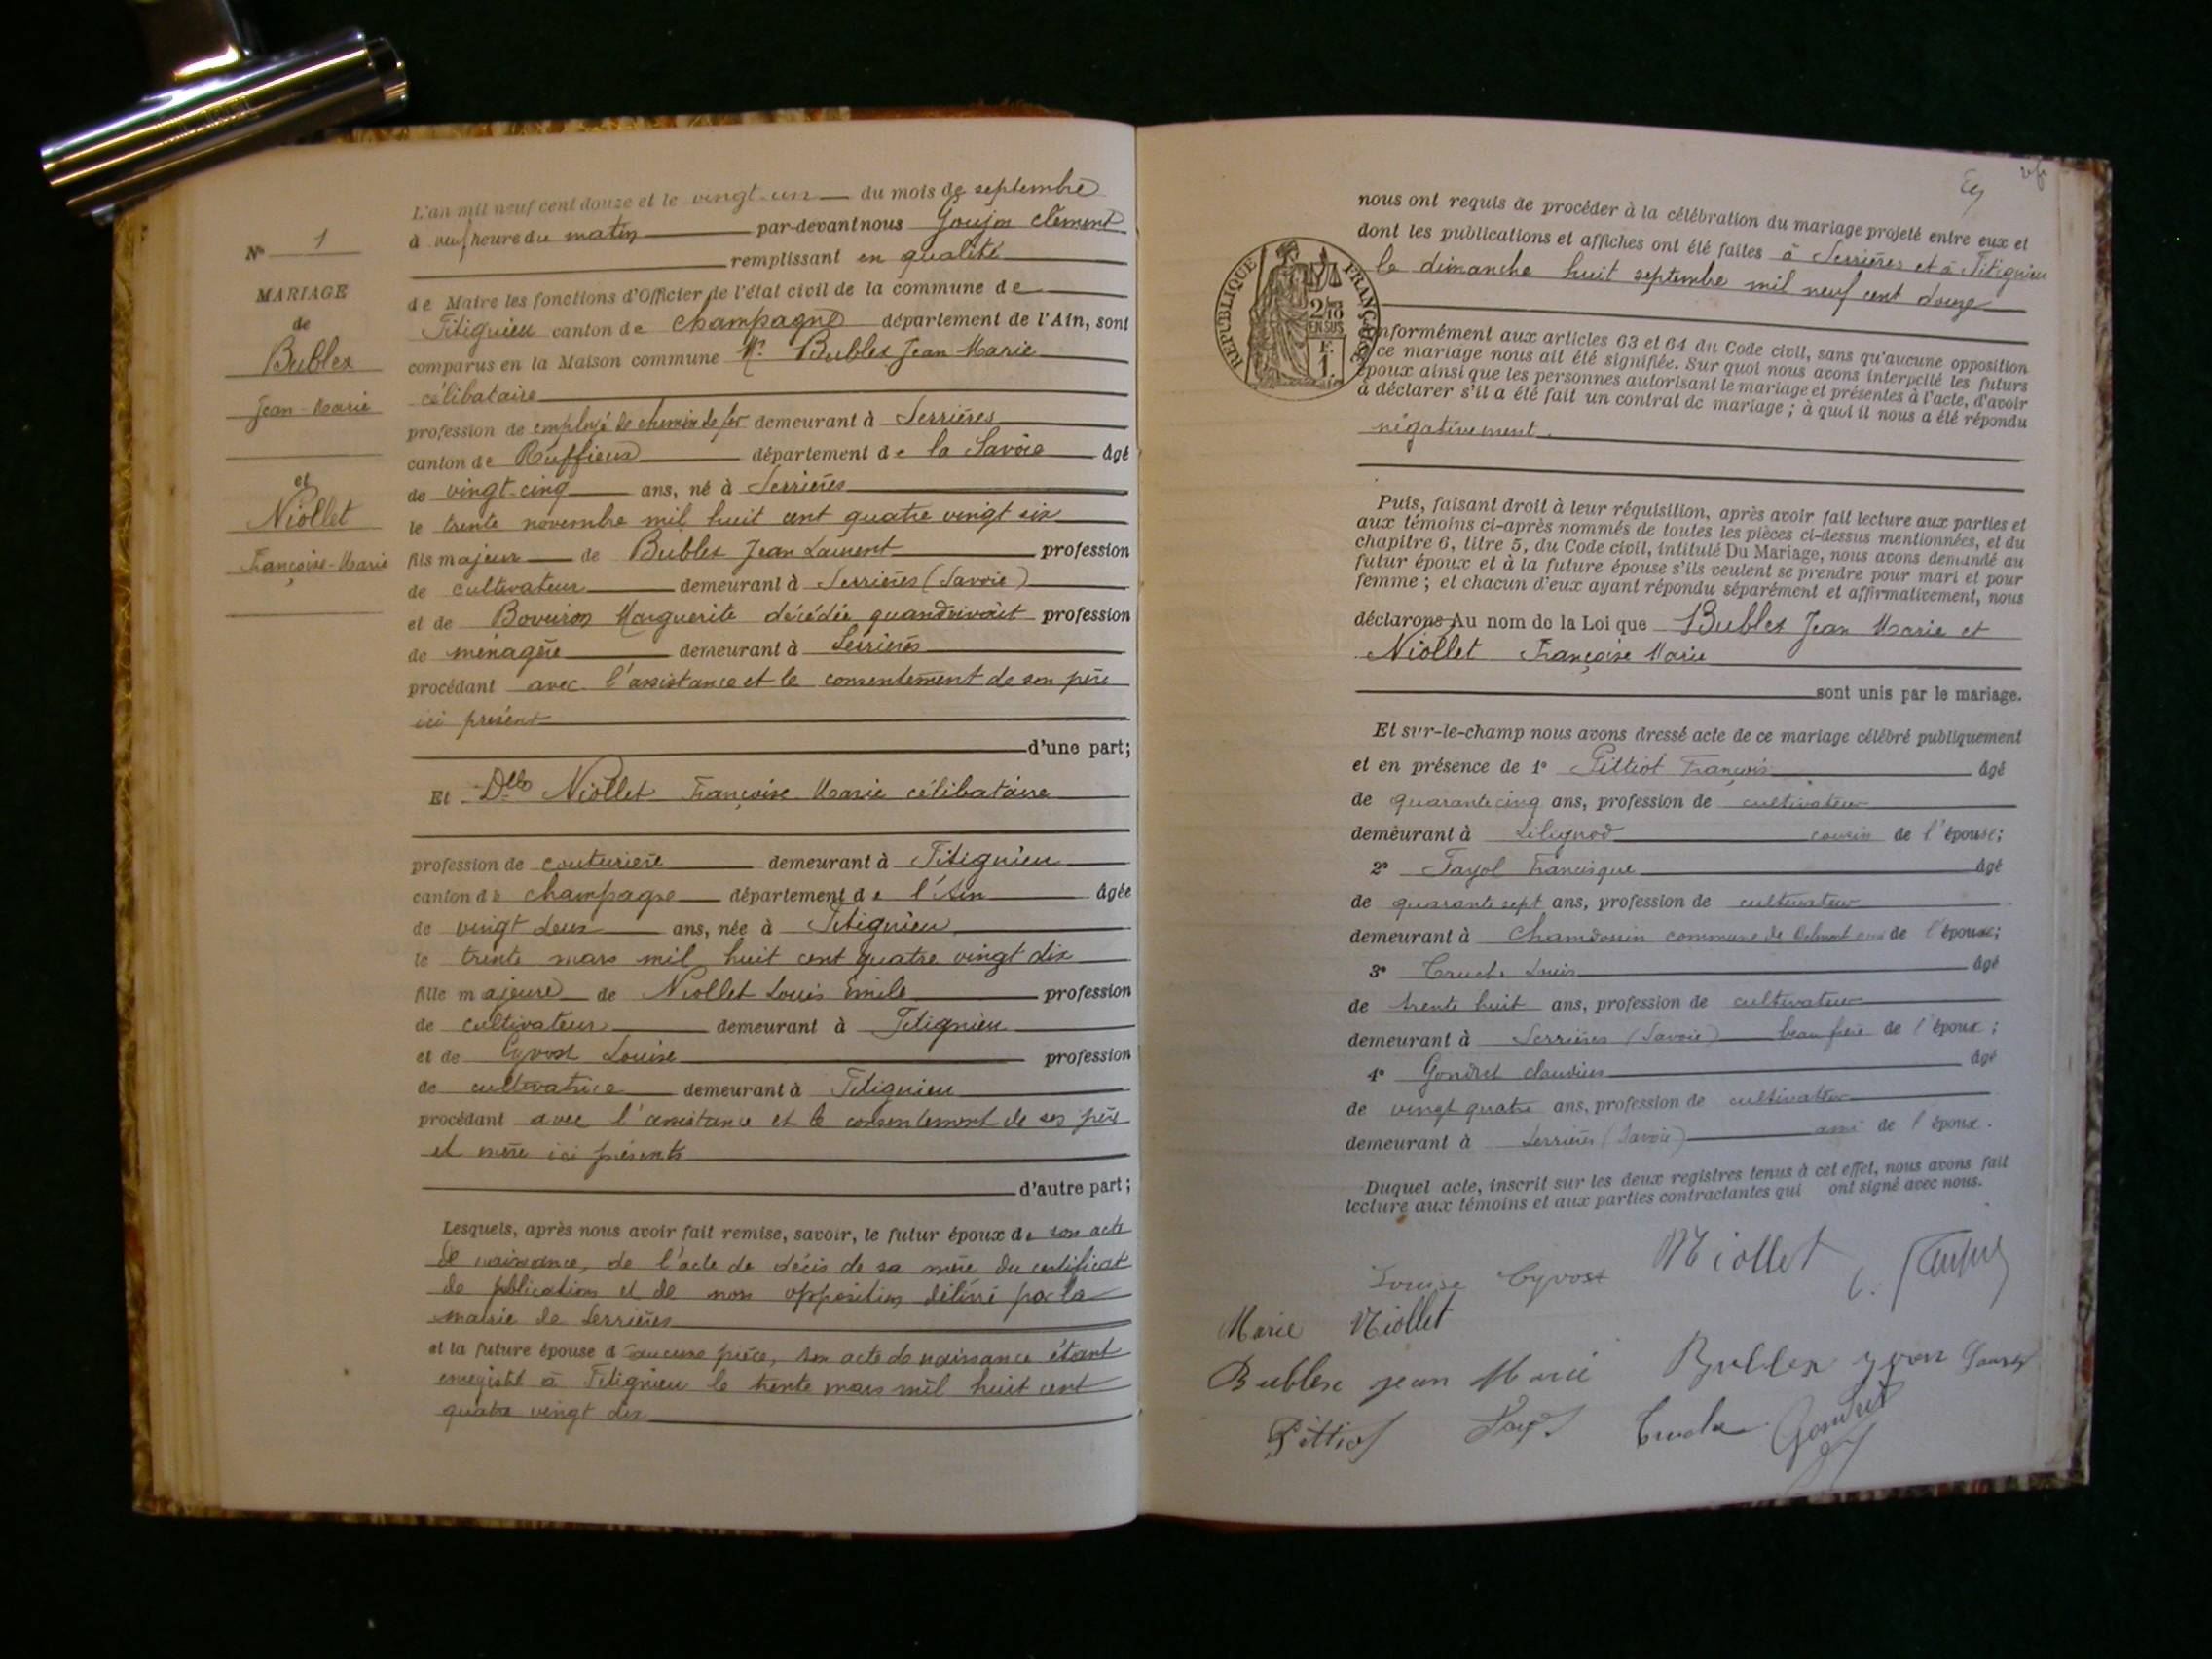 L'an mil neuf cent douze et le vingt-un du mois de septembre
à neuf heure du matin par-devant nous Goujon Clément
remplissant en qualité
de Maire les fonctions d'Officier de l'état civil de la commune de
Fitignieu canton de Champagne département de l'Ain, sont
comparus en la Maison commune Mr Bublex Jean Marie
célibataire
profession de employé de chemin de fer demeurant à Serrières
canton de Ruffieux département de la Savoie âgé
de vingt-cinq ans, né à Serrières
le trente novembre mil huit cent quatre vingt six
fils majeur de Bublex Jean Laurent profession
de cultivateur demeurant à Serrières (Savoie)
et de Boveiron Marguerite décédée quand vivait profession
de ménagère demeurant à Serrières
procédant avec l'assistance et le consentement de son père
ici présent
d'une part;
Et Dlle Niollet Françoise Marie célibataire
profession de couturière demeurant à Fitignieu
canton de Champagne département de l'Ain âgée
de vingt deux ans, née à Fitignieu
le trente mars mil huit cent quatre vingt dix
fille majeure de Niollet Louis Emile profession
de cultivateur demeurant à Fitignieu
et de Cyvost Louise profession
de cultivatrice demeurant à Fitignieu
procédant avec l'assistance et le consentement de ses père
et mère ici présents
d'autre part;
Lesquels, après nous avoir fait remise, savoir, le futur époux de son acte
de naissance, de l'acte de décès de sa mère du certificat
de publication et de non opposition délivré par la
mairie de Serrières
et la future épouse d'aucune pièce, son acte de naissance étant
enregistré à Fitignieu le trente mars mil huit cent
quatre vingt dix
No 1
MARIAGE
de
Bublex
Jean-Marie
et
Niollet
Françoise-Marie
nous ont requis de procéder à la célébration du mariage projeté entre eux et
dont les publications et affiches ont été faites à Serrières et à Fitignieu
le dimanche huit septembre mil neuf cent douze
RÉPUBLIQUE FRANÇAISE
2/10
EN SUS
F.
1.
conformément aux articles 63 et 64 du Code civil, sans qu'aucune opposition
à ce mariage nous ait été signifiée. Sur quoi nous avons interpellé les futurs
époux ainsi que les personnes autorisant le mariage et présentes à l'acte, d'avoir
à déclarer s'il a été fait un contrat de mariage; à quoi il nous a été répondu
négativement.
Puis, faisant droit à leur réquisition, après avoir fait lecture aux parties et
aux témoins ci-après nommés de toutes les pièces ci-dessus mentionnées, et du
chapitre 6, titre 5, du Code civil, intitulé Du Mariage, nous avons demandé au
futur époux et à la future épouse s'ils veulent se prendre pour mari et pour
femme; et chacun d'eux ayant répondu séparément et affirmativement, nous
déclarons Au nom de la Loi que Bublex Jean Marie et
Niollet Françoise Marie
sont unis par le mariage.
Et sur-le-champ nous avons dressé acte de ce mariage célébré publiquement
et en présence de 1° Pittiot François âgé
de quarante cinq ans, profession de cultivateur
demeurant à Lilignod cousin de l'épouse;
2° Fayol Francisque âgé
de quarante sept ans, profession de cultivateur
demeurant à Chamdossin commune de Belmont ami de l'épouse;
3° Truche Louis âgé
de trente huit ans, profession de cultivateur
demeurant à Serrières (Savoie) beau frère de l'époux;
4° Gondret Claudius âgé
de vingt quatre ans, profession de cultivateur
demeurant à Serrières (Savoie) ami de l'époux.
Duquel acte, inscrit sur les deux registres tenus à cet effet, nous avons fait
lecture aux témoins et aux parties contractantes qui ont signé avec nous.
Louise Cyvost Niollet
Marie Niollet
Bublex jean Marie Bublex
Pittiot Fayol Truche Gondret